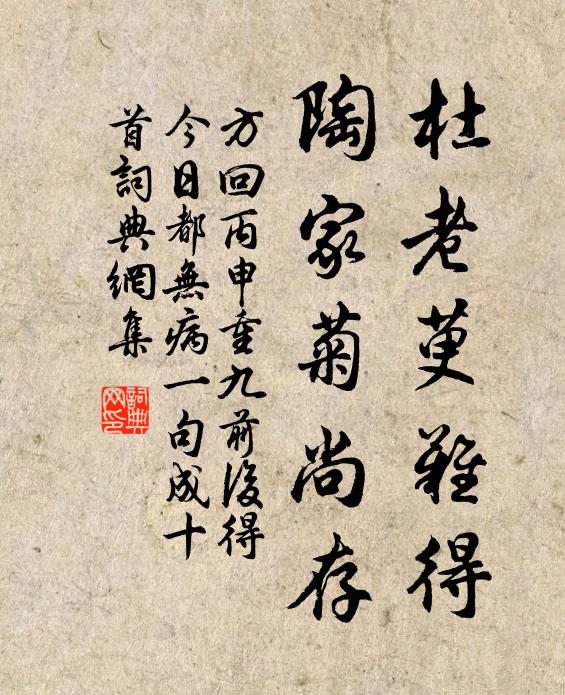 杜老萸難得
陶家菊尚存
方回丙申重九前後得
今日都無病一句成十
首詞典網集
詞典
网印